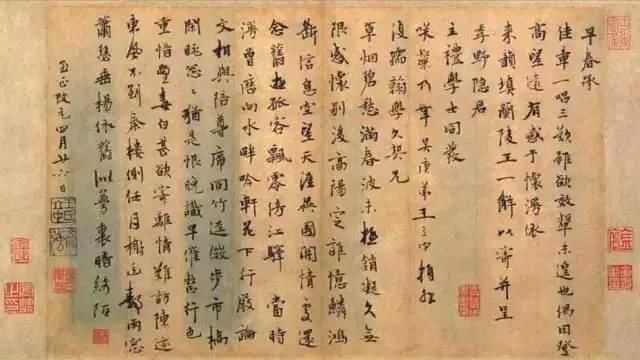 早春承
佳章一唱三歎雖欲效顰未遑也偶因登
高望遠有感于懷漫依
來韻填蘭陵王一解以寄并呈
季野隱君
主禮學士同發
咲粲乃幸 吳庚弟王立中頓首
復孺翰學久契兄
草烟碧愁滿春波未極銷凝久無
限感懷別後高陽定誰憶鱗鴻
斷信息空望天涯無國閒情還
念舊遊孤客飄零傍江驛 當時
漫曾歷向水畔吟軒花下行廚論
文相與陪尊席同竹逕微步市橋
閑眺忽忽猶是恨晚識早催愁行色
重惜鬢毛白甚欲寄離情難訪陳迹
東風不到秦樓側任月榭雨窓
蕭瑟垂楊依舊似夢裏暗綺陌
至正改元四月廿六日